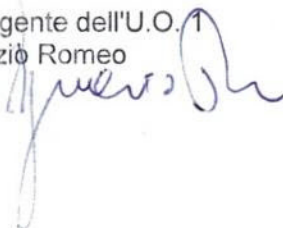 gente dell'U.O. 1
zio Romeo